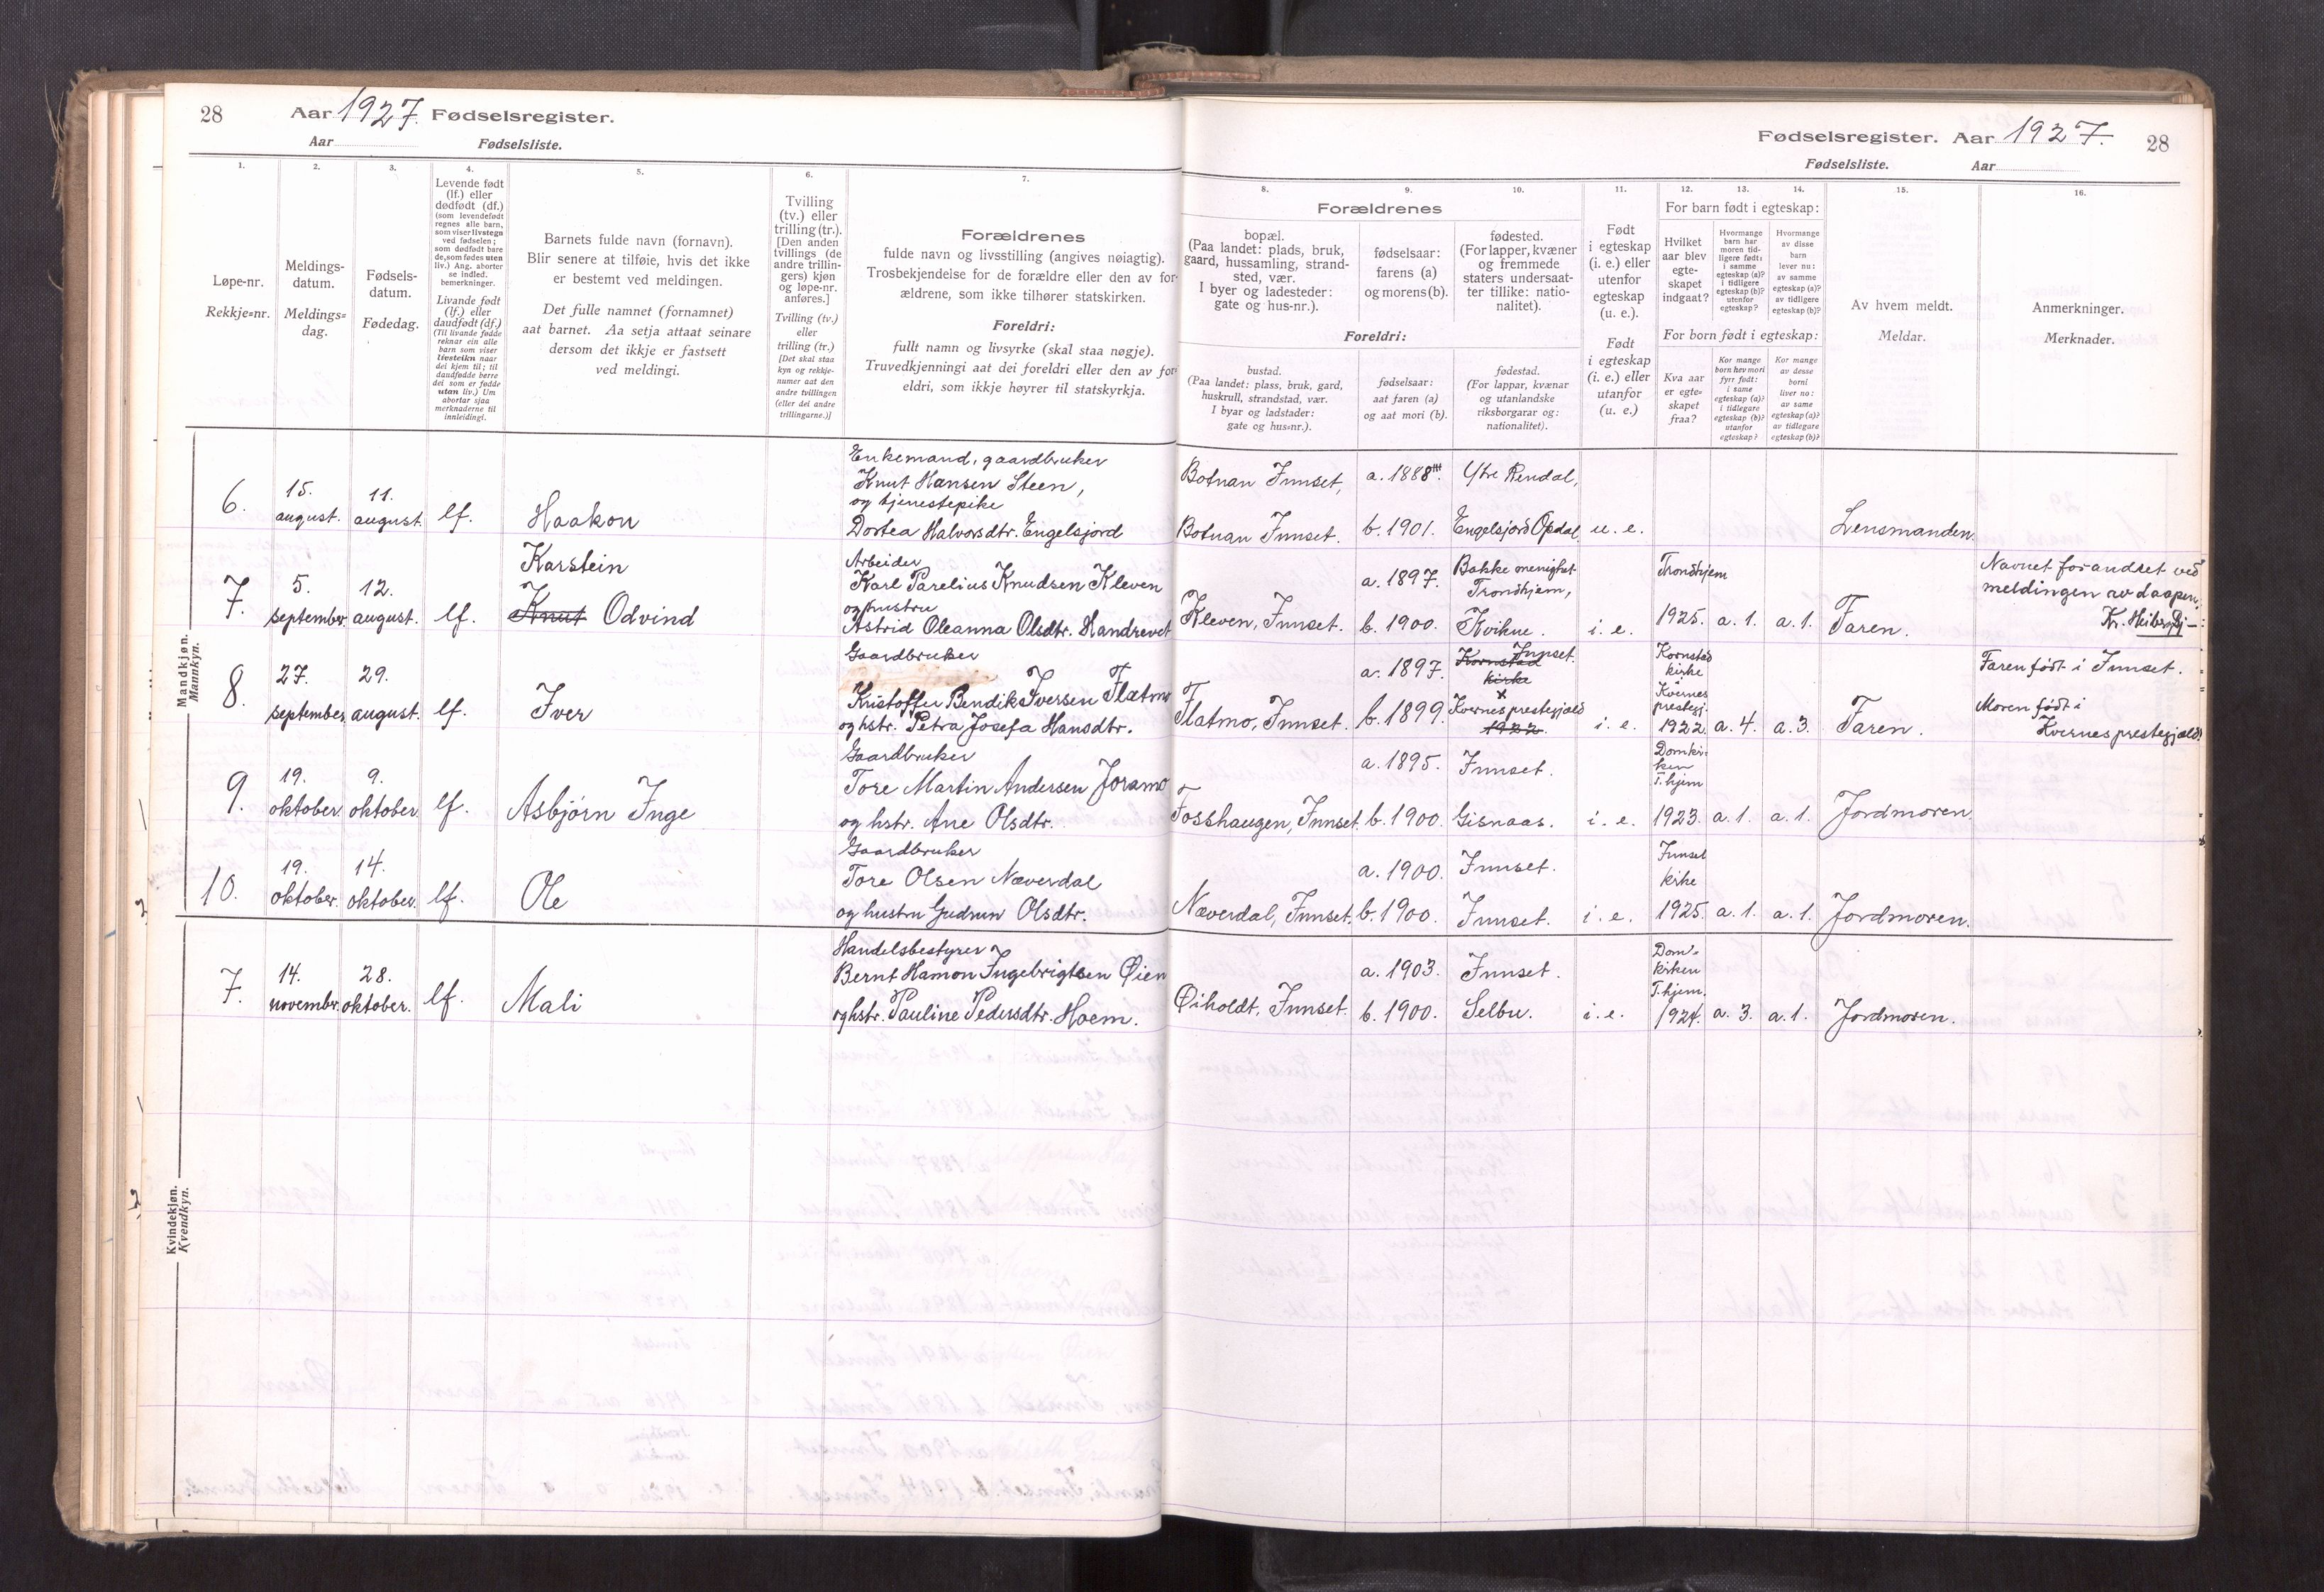 28 Aar 1927. Fødselsregister.
Aar Fødselsliste.
Fødselsregister. Aar 1927. 28
Fødselsliste. Aar
1. 2. 3. 4. 5. 6. 7. 8. 9. 10. 11. 12. 13. 14. 15. 16.
Løpe-nr.
Rekkje=nr.
Meldings-
datum.
Meldings=
dag.
Fødsels-
datum.
Fødedag.
Levende født
(lf.) eller
dødfødt (df.)
(som levendefødt
regnes alle barn,
som viser livstegn
ved fødselen;
som dødfødt bare
de, som fødes uten
liv.) Ang. aborter
se indled.
bemerkninger.
Livande født
(lf.) eller
daudfødt (df.)
(Til livande fødde
reknar ein alle
barn som viser
livsteikn naar
dei kjem til; til
daudfødde berre
dei som er fødde
utan liv.) Um
abortar sjaa
merknaderne til
innleidingi.
Barnets fulde navn (fornavn).
Blir senere at tilføie, hvis det ikke
er bestemt ved meldingen.
Det fulle namnet (fornamnet)
aat barnet. Aa setja attaat seinare
dersom det ikkje er fastsett
ved meldingi.
Tvilling
(tv.) eller
trilling (tr.).
[Den anden
tvillings (de
andre trillin-
gers) kjøn
og løpe-nr.
anføres.]
Tvilling (tv.)
eller
trilling (tr.)
[Det skal staa
kyn og rekkje-
numer aat den
andre tvillingen
(eller dei andre
trillingarne.)]
Forældrenes
fulde navn og livsstilling (angives nøiagtig).
Trosbekjendelse for de forældre eller den av for-
ældrene, som ikke tilhører statskirken.
Foreldri:
fullt namn og livsyrke (skal staa nøgje).
Truvedkjenningi aat dei foreldri eller den av for-
eldri, som ikkje høyrer til statskyrkja.
Forældrenes
bopæl.
(Paa landet: plads, bruk,
gaard, hussamling, strand-
sted, vær.
I byer og ladesteder:
gate og hus-nr.).
fødselsaar:
farens (a)
og morens (b).
fødested.
(For lapper, kvæner
og fremmede
staters undersaat-
ter tillike: natio-
nalitet).
Foreldri:
bustad.
(Paa landet: plass, bruk, gard,
huskrull, strandstad, vær.
I byar og ladstader:
gate og hus=nr.).
fødselsaar:
aat faren (a)
og aat mori (b).
fødestad.
(For lappar, kvænar
og utanlandske
riksborgarar og:
nationalitet).
Født
i egteskap
(i. e.) eller
utenfor
egteskap
(u. e.).
Født
i egteskap
(i. e.) eller
utanfor
(u. e.)
For barn født i egteskap:
Hvilket
aar blev
egte-
skapet
indgaat?
Hvormange
barn har
moren tid-
ligere født:
i samme
egteskap (a)?
i tidligere
egteskap (b)?
utenfor
egteskap?
Hvormange
av disse
barn
lever nu:
av samme
egteskap (a)?
av tidligere
egteskap (b)?
For born født i egteskap:
Kva aar
er egte-
skapet
fraa?
Kor mange
born hev mori
fyrr født:
i same
egteskap (a)?
i tidlegare
egteskap (b)?
utanfor
egteskap?
Kor mange
av desse
borni
liver no:
av same
egteskap (a)?
av tidlegare
egteskap (b)?
Av hvem meldt.
Meldar.
Anmerkninger.
Merknader.
Mandkjøn.
Mannkyn.
Enkemand, gaardbruker
Knut Hansen Steen, Botnan Innset, a. 1888 Ytre Rendal,
6. 15. august. 11. august. lf. Haakon og tjenestepike
Dortea Halvorsdtr. Engelsjord Botnan Innset. b. 1901. Engelsjord Opdal. u. e. Lensmanden.
Karstein Arbeider
Karl Parelius Knudsen Kleven a. 1897. Bakke menighet Trondhjem, Trondhjem Navnet forandret ved
meldingen av daapen.
7. 5. september. 12. august. lf. Knut Odvind og hustru
Astrid Oleanna Olsdtr. Handrevet Kleven, Innset. b. 1900. Kvikne. i. e. 1925. a. 1. a. 1. Faren.
Gaardbruker
Kristoffer Bendik Iversen Flatmo a. 1897. Kornstad kirke Innset. Kornstad kirke Faren født i Innset.
8. 27. september. 29. august. lf. Iver og hstr. Petra Josefa Hansdtr. Flatmo, Innset. b. 1899. x Kvernes prestegjæld 1922. i. e. Kvernes prestegj. 1922. a. 4. a. 3. Faren. Moren født i
Kvernes prestegjæld.
Gaardbruker
Tore Martin Andersen Joramo a. 1895. Innset. Domkirken T.hjem
9. 19. oktober. 9. oktober. lf. Asbjørn Inge og hstr. Ane Olsdtr. Fosshaugen, Innset. b. 1900. Gisnaas. i. e. 1923. a. 1. a. 1. Jordmoren.
Gaardbruker
Tore Olsen Næverdal a. 1900. Innset. Innset kirke
10. 19. oktober. 14. oktober. lf. Ole og hustru Gudrun Olsdtr. Næverdal, Innset. b. 1900. Innset. i. e. 1925. a. 1. a. 1. Jordmoren.
Kvindekjøn.
Kvendkyn.
Handelsbestyrer
Bernt Hamon Ingebrigtsen Øien a. 1903. Innset. Dom-kirken T.hjem.
7. 14. novembr. 28. oktober. lf. Mali og hstr. Pauline Pedersdtr. Hoem. Øiholdt, Innset. b. 1900. Selbu. i. e. 1924. a. 3. a. 1. Jordmoren.